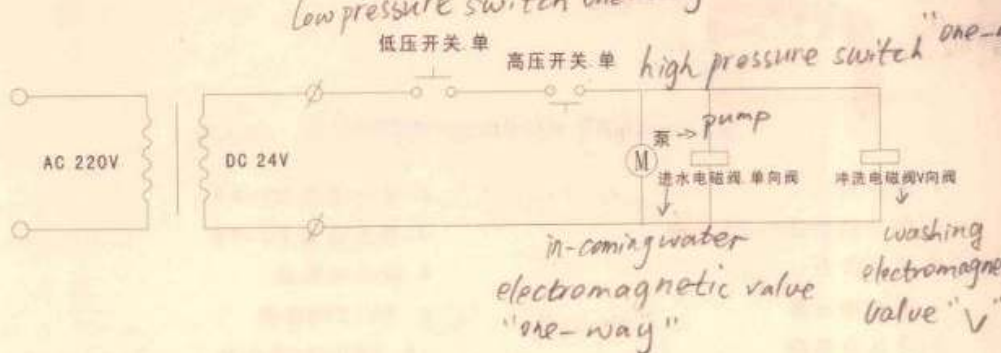 low pressure switch one-
低压开关.单
高压开关.单
high pressure switch "one-
AC 220V
DC 24V
泵 → pump
M
进水电磁阀.单向阀
冲洗电磁阀V向阀
in-coming water
electromagnetic value
"one-way"
washing
electromagne
value "V"